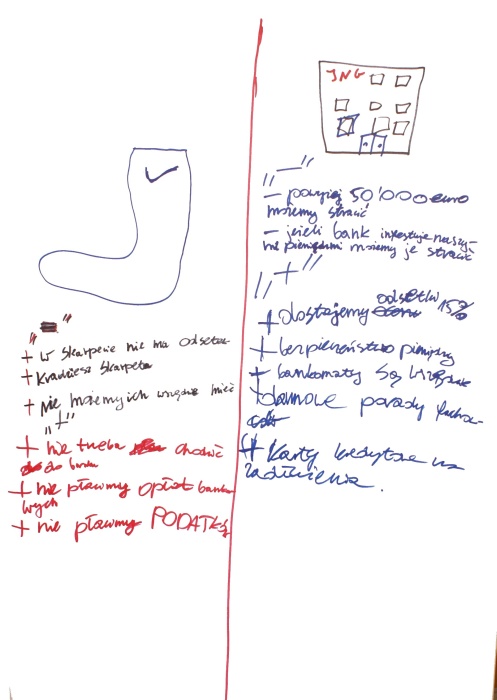 "-"
+ w skarpecie nie ma odsetek
+ Kradzież skarpeta
+ nie możemy ich wszędzie mieć
"+"
+ nie trzeba chodzić
do banku
+ nie pławmy opłat banko
wych
+ nie pławmy PODATKÓW
JNG
"—"
— powyżej 50'000 euro
możemy stracić
— jeżeli bank inwestuje naszy-
mi pieniędzmi możemy je stracić
"+"
+ dostajemy odsetki 15%
+ bezpieczeństwo pieniędzy
+ bankomaty są wszędzie
+ darmowe porady
+ Karty kredytowe na
zadłużenie.